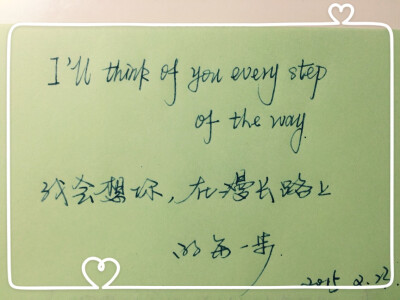 I'll think of you every step
of the way.
我会想你，在漫长路上
的每一步.
2015.2.23.